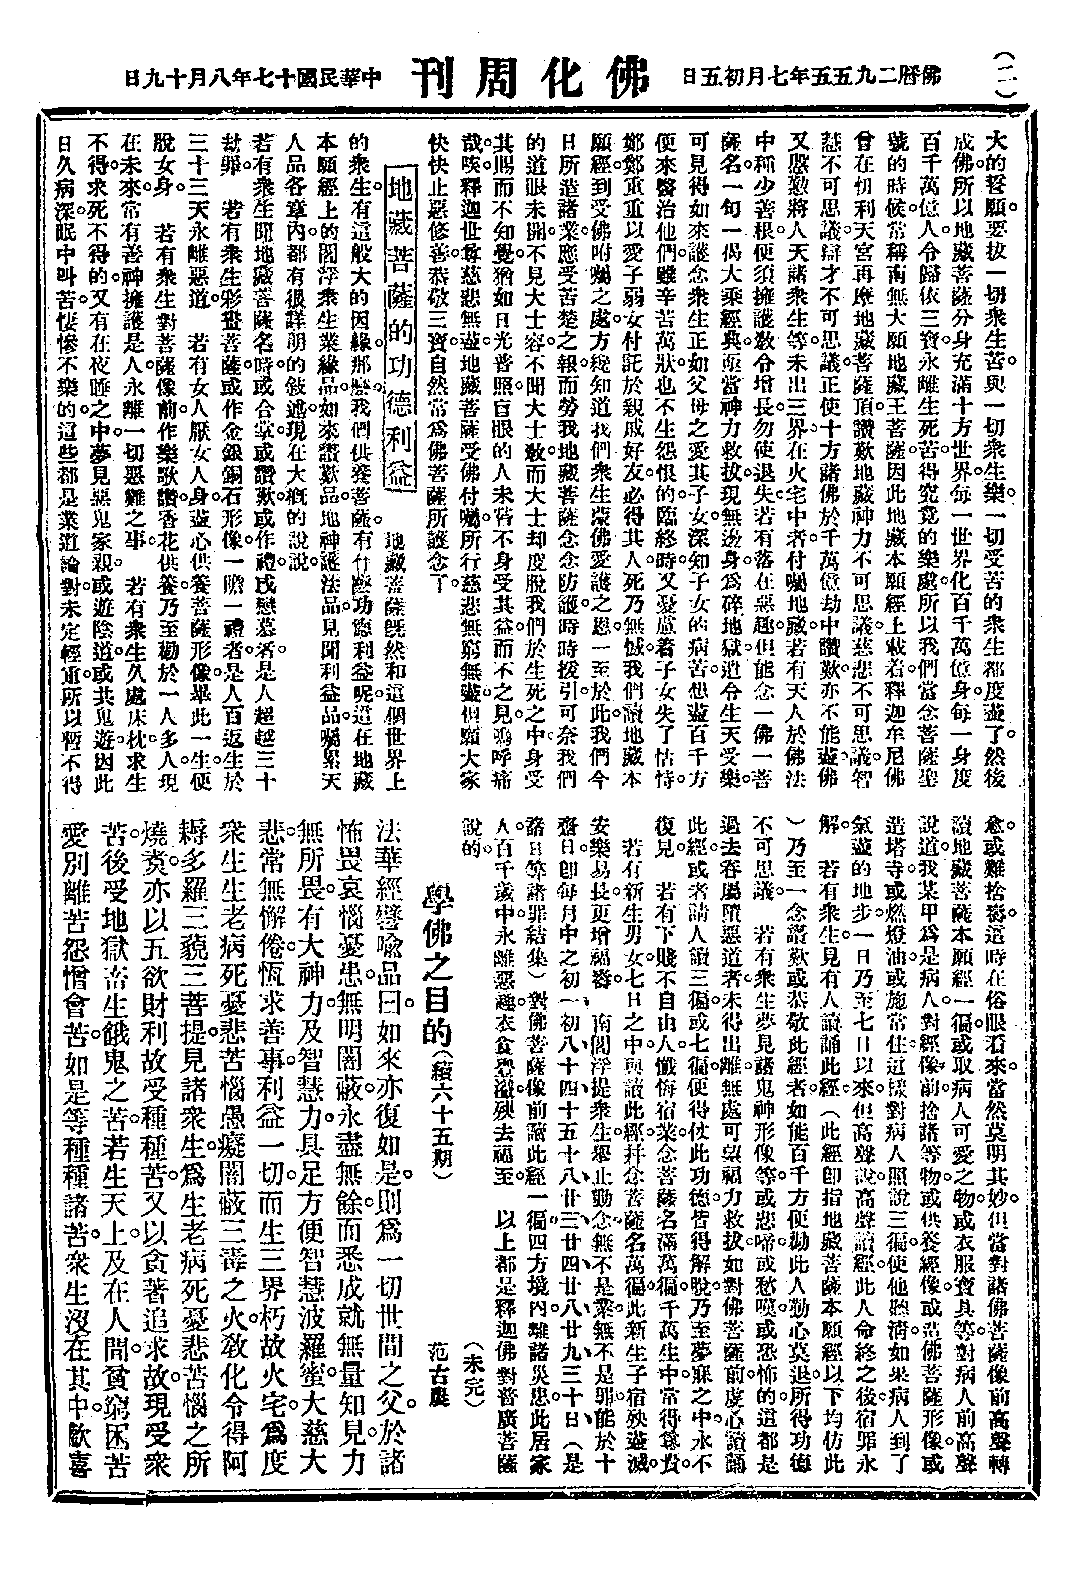 （二）
佛曆二九五五年七月初五日
佛化周刊
中華民國十七年八月十九日
大的誓願。要拔一切衆生苦。與一切衆生樂。一切受苦的衆生都度盡了。然後
成佛。所以地藏菩薩分身充滿十方世界。每一世界化百千萬億身。每一身度
百千萬億人。令歸依三寶。永離生死苦。得究竟的樂處。所以我們當念菩薩聖
號的時候。常稱南無大願地藏王菩薩。因此地藏本願經上載着。釋迦牟尼佛
曾在忉利天宮再摩地藏菩薩頂。讚歎地藏神力不可思議。慈悲不可思議。智
慧不可思議。辯才不可思議。正使十方諸佛於千萬億劫中讚歎。亦不能盡。佛
又慇懃將人天諸衆生等。未出三界。在火宅中者。付囑地藏。若有天人。於佛法
中種少善根。便須擁護。敎令增長。勿使退失。若有落在惡趣。但能念一佛一菩
薩名。一句一偈大乘經典。亟當神力救拔。現無邊身。爲碎地獄。遣令生天受樂。
可見得如來護念衆生。正如父母之愛其子女。深知子女的病苦。想盡百千方
便來醫治他們。雖辛苦萬狀。也不生怨恨的。臨終時又憂慮着子女失了怙恃。
鄭鄭重重以愛子弱女付託於親戚好友。必得其人。死乃無憾。我們讀地藏本
願經。到受佛咐囑之處。方纔知道我們衆生蒙佛愛護之恩。一至於此。我們今
日所造諸業。應受苦楚之報。而勞我地藏菩薩念念防護。時時拔引。可奈我們
的道眼未開。不見大士容。不聞大士敎。而大士却度脫我們於生死之中。身受
其賜而不知覺。猶如日光普照。盲眼的人未嘗不身受其益。而不之見。嗚呼痛
哉。唉。釋迦世尊慈悲無盡。地藏菩薩受佛付囑。所行慈悲無窮無盡。但願大家
快快止惡修善。恭敬三寶。自然常爲佛菩薩所護念了。
地藏菩薩的功德利益　地藏菩薩旣然和這個世界上
的衆生。有這般大的因緣。那麽。我們供養菩薩。有什麽功德利益呢。這在地藏
本願經上的閻浮衆生業緣品。如來讚歎品。地神護法品。見聞利益品。囑累天
人品各章內。都有很詳明的敍述。現在大槪的說說。
若有衆生聞地藏菩薩名時。或合掌。或讚歎。或作禮。或戀慕者。是人超越三十
劫罪。　若有衆生彩畫菩薩。或作金銀銅石形像。一瞻一禮者。是人百返生於
三十三天。永離惡道。　若有女人厭女人身。盡心供養菩薩形像。畢此一生。便
脫女身。　若有衆生對菩薩像前作樂歌讚。香花供養。乃至勸於一人多人。現
在未來常有善神擁護。是人永離一切惡難之事。　若有衆生久處床枕。求生
不得。求死不得的。又有在夜睡之中。夢見惡鬼家親。或遊陰道。或共鬼遊。因此
日久病深。眠中叫苦。悽慘不樂的。這些都是業道論對。未定輕重。所以暫不得
愈。或難捨壽。這時在俗眼看來。當然莫明其妙。但當對諸佛菩薩像前高聲轉
讀地藏菩薩本願經一徧。或取病人可愛之物。或衣服寶具等。對病人前高聲
說道。我某甲爲是病人。對經像前捨諸等物。或供養經像。或造佛菩薩形像。或
造塔寺。或燃燈油。或施常住。這樣對病人照說三徧。使他聽淸。如果病人到了
氣盡的地步。一日乃至七日以來。但高聲說高聲讀經。此人命終之後。宿罪永
解。　若有衆生見有人讀誦此經（此經卽指地藏菩薩本願經以下均仿此
）乃至一念讚歎。或恭敬此經者。如能百千方便勸此人勤心莫退。所得功德
不可思議。　若有衆生夢見諸鬼神形像等。或悲啼或愁嘆或恐怖的。這都是
過去眷屬。墮惡道者。未得出離。無處可蒙福力救拔。如對佛菩薩前。虔心讀誦
此經。或者請人讀三徧。或七徧。便得仗此功德。皆得解脫。乃至夢寐之中。永不
復見。　若有下賤不自由人。懺悔宿業。念菩薩名滿萬徧。千萬生中常得尊貴。
若有新生男女。七日之中。再讀此經。幷念菩薩名萬徧。此新生子。宿殃盡滅。
安樂易長。更增福壽。　南閻浮提衆生。舉止動念。無不是業。無不是罪。能於十
齋日。卽每月中之初一。初八。十四。十五。十八。廿三。廿四。廿八。廿九。三十日（是
諸日等諸罪結集）對佛菩薩像前讀此經一徧。四方境內。離諸災患。此居家
人百千歲中永離惡趣。衣食豐溢。殃去福至。　以上都是釋迦佛對普廣菩薩
說的。
（未完）
學佛之目的（續六十五期）
范古農
法華經譬喩品曰。如來亦復如是。則爲一切世間之父。於諸
怖畏哀惱憂患。無明闇蔽。永盡無餘。而悉成就無量知見力
無所畏。有大神力及智慧力。具足方便智慧波羅蜜。大慈大
悲。常無懈倦。恆求善事。利益一切。而生三界朽故火宅。爲度
衆生生老病死憂悲苦惱愚癡闇蔽三毒之火。敎化令得阿
耨多羅三藐三菩提。見諸衆生。爲生老病死憂悲苦惱之所
燒煑。亦以五欲財利故。受種種苦。又以貪著追求故。現受衆
苦。後受地獄畜生餓鬼之苦。若生天上。及在人間。貧窮困苦
愛別離苦怨憎會苦。如是等種種諸苦。衆生沒在其中。歡喜